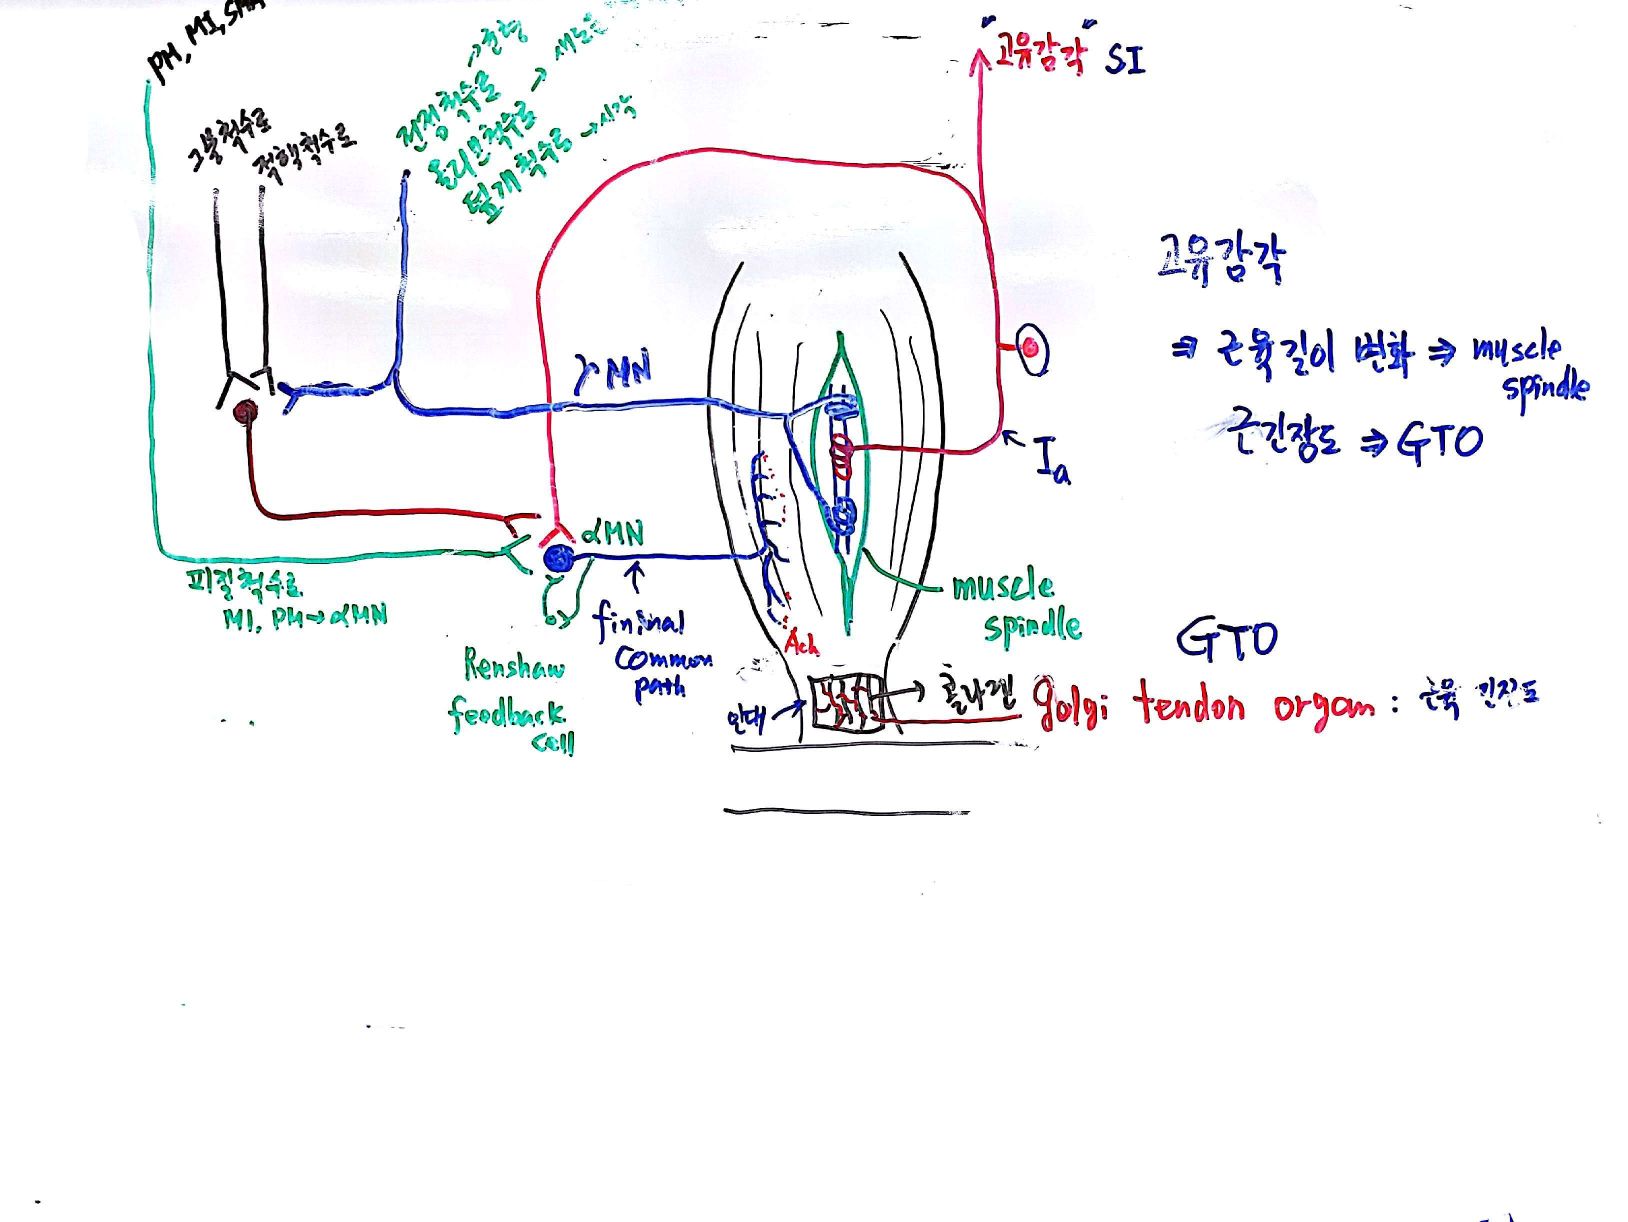 PM, MI, SMA
그물척수로
적핵척수로
전정척수로 →균형
올리브척수로 →
덮개척수로 →시각
"고유감각" SI
고유감각
⇒ 근육길이 변화 ⇒ muscle
spindle
근긴장도 ⇒ GTO
γ MN
Ia
αMN
피질척수로
MI, PM→αMN
fininal
common
path
Ach
muscle
spindle
Renshaw
feedback
cell
인대
콜라겐
GTO
golgi tendon organ : 근육 긴장도